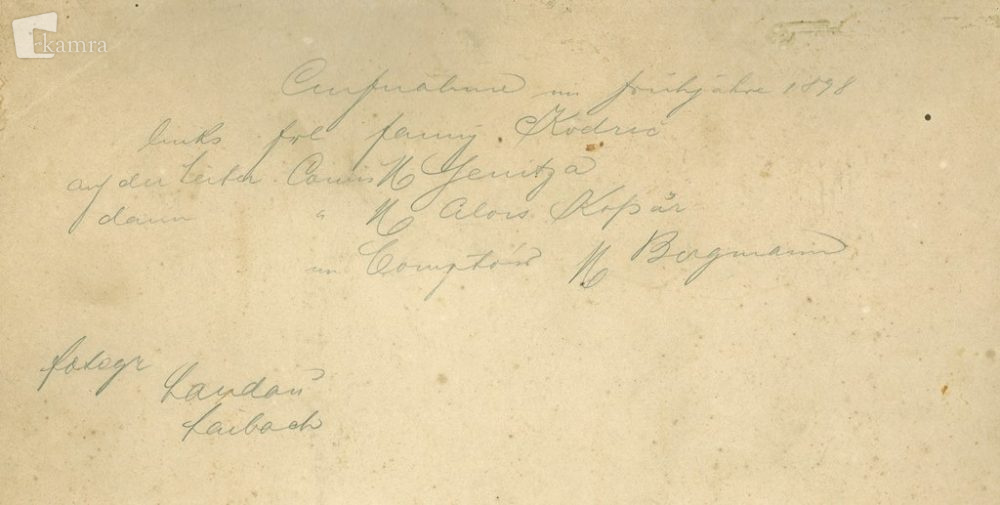 kamra
Aufnahme im Frühjahre 1898
links Frl Fanny Kodric
auf der Leiter Comis H Jenitza
dann " H Alois
im Comptoir H Bergmann
fotogr
Landau
Laibach